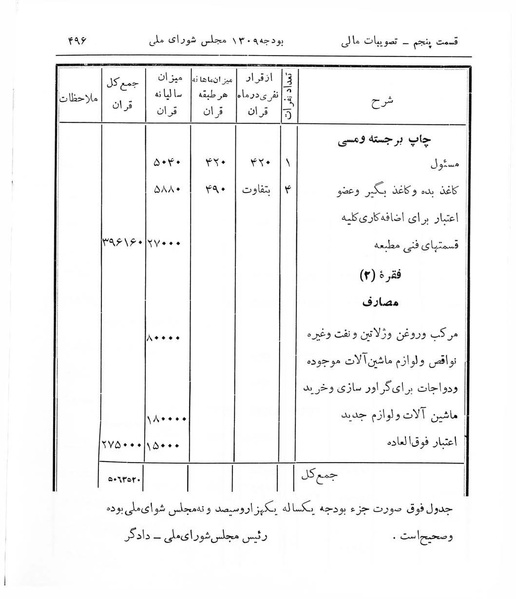 قسمت پنجم – تصویبات مالی بودجه ۱۳۰۹ مجلس شورای ملی ۴۹۶
شرح تعداد نفرات از قرار نفری درماه قران میزان ماهانه هر طبقه قران میزان سالیانه قران جمع کل قران ملاحظات
چاپ برجسته ومسی
مسئول ۱ ۴۲۰ ۴۲۰ ۵۰۴۰
کاغذ بده وکاغذ بگیر وعضو ۴ بتفاوت ۴۹۰ ۵۸۸۰
اعتبار برای اضافه کاری کلیه
قسمتهای فنی مطبعه ۲۷۰۰۰ ۳۹۶۱۶۰
فقرهٔ (۲)
مصارف
مرکب وروغن وژلاتین و نفت وغیره ۸۰۰۰۰
نواقص ولوازم ماشین آلات موجوده
ودواجات برای گراور سازی و خرید
ماشین آلات ولوازم جدید ۱۸۰۰۰۰
اعتبار فوق العاده ۱۵۰۰۰ ۲۷۵۰۰۰
جمع کل ۵۰۶۳۵۲۰
جدول فوق صورت جزء بودجه یکساله یکهزاروسیصد و نه مجلس شوای ملی بوده
وصحیح است . رئیس مجلس شورای ملی – دادگر